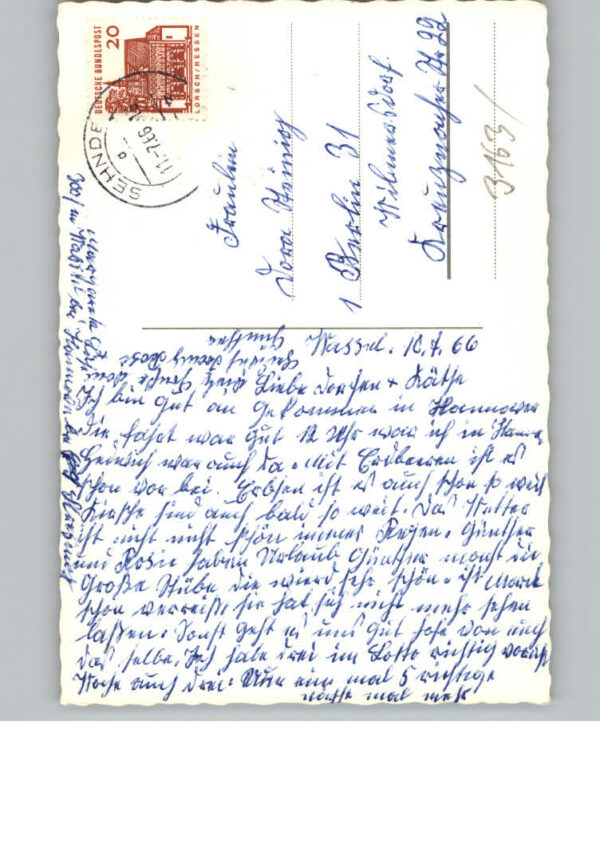 DEUTSCHE BUNDESPOST
20
LORSCH/HESSEN
SEHNDE
11.-7.66
Fräulein
Dora König
1 Berlin 31
Wilmersdorf
Kreuznacher Str 22
3163/
Wassel. 10.7.66
Liebe Dorchen + Käthe
Ich bin gut an gekommen in Hannover
Die fahrt war gut 12 Uhr war ich in
Heinrich war auch da. Mit Erdbeeren ist es
schon vor bei. Erbsen ist es auch schon so weit
Kirsche sind auch bald so weit. Das Wetter
ist nicht schön immer Regen. Günther
und Rosie haben Urlaub Günther macht die
Große Stube die wierd sehr schön. ist
schon verreist sie hat sich nicht mehr sehen
laßen. Sonst geht es uns gut hofe von euch
das selbe. Ich habe drei im Lotto richtig vorige
Woche auch drei. Nur ein mal 5 richtige
mal mehr
Günther
3001 Wassel bei Hannover